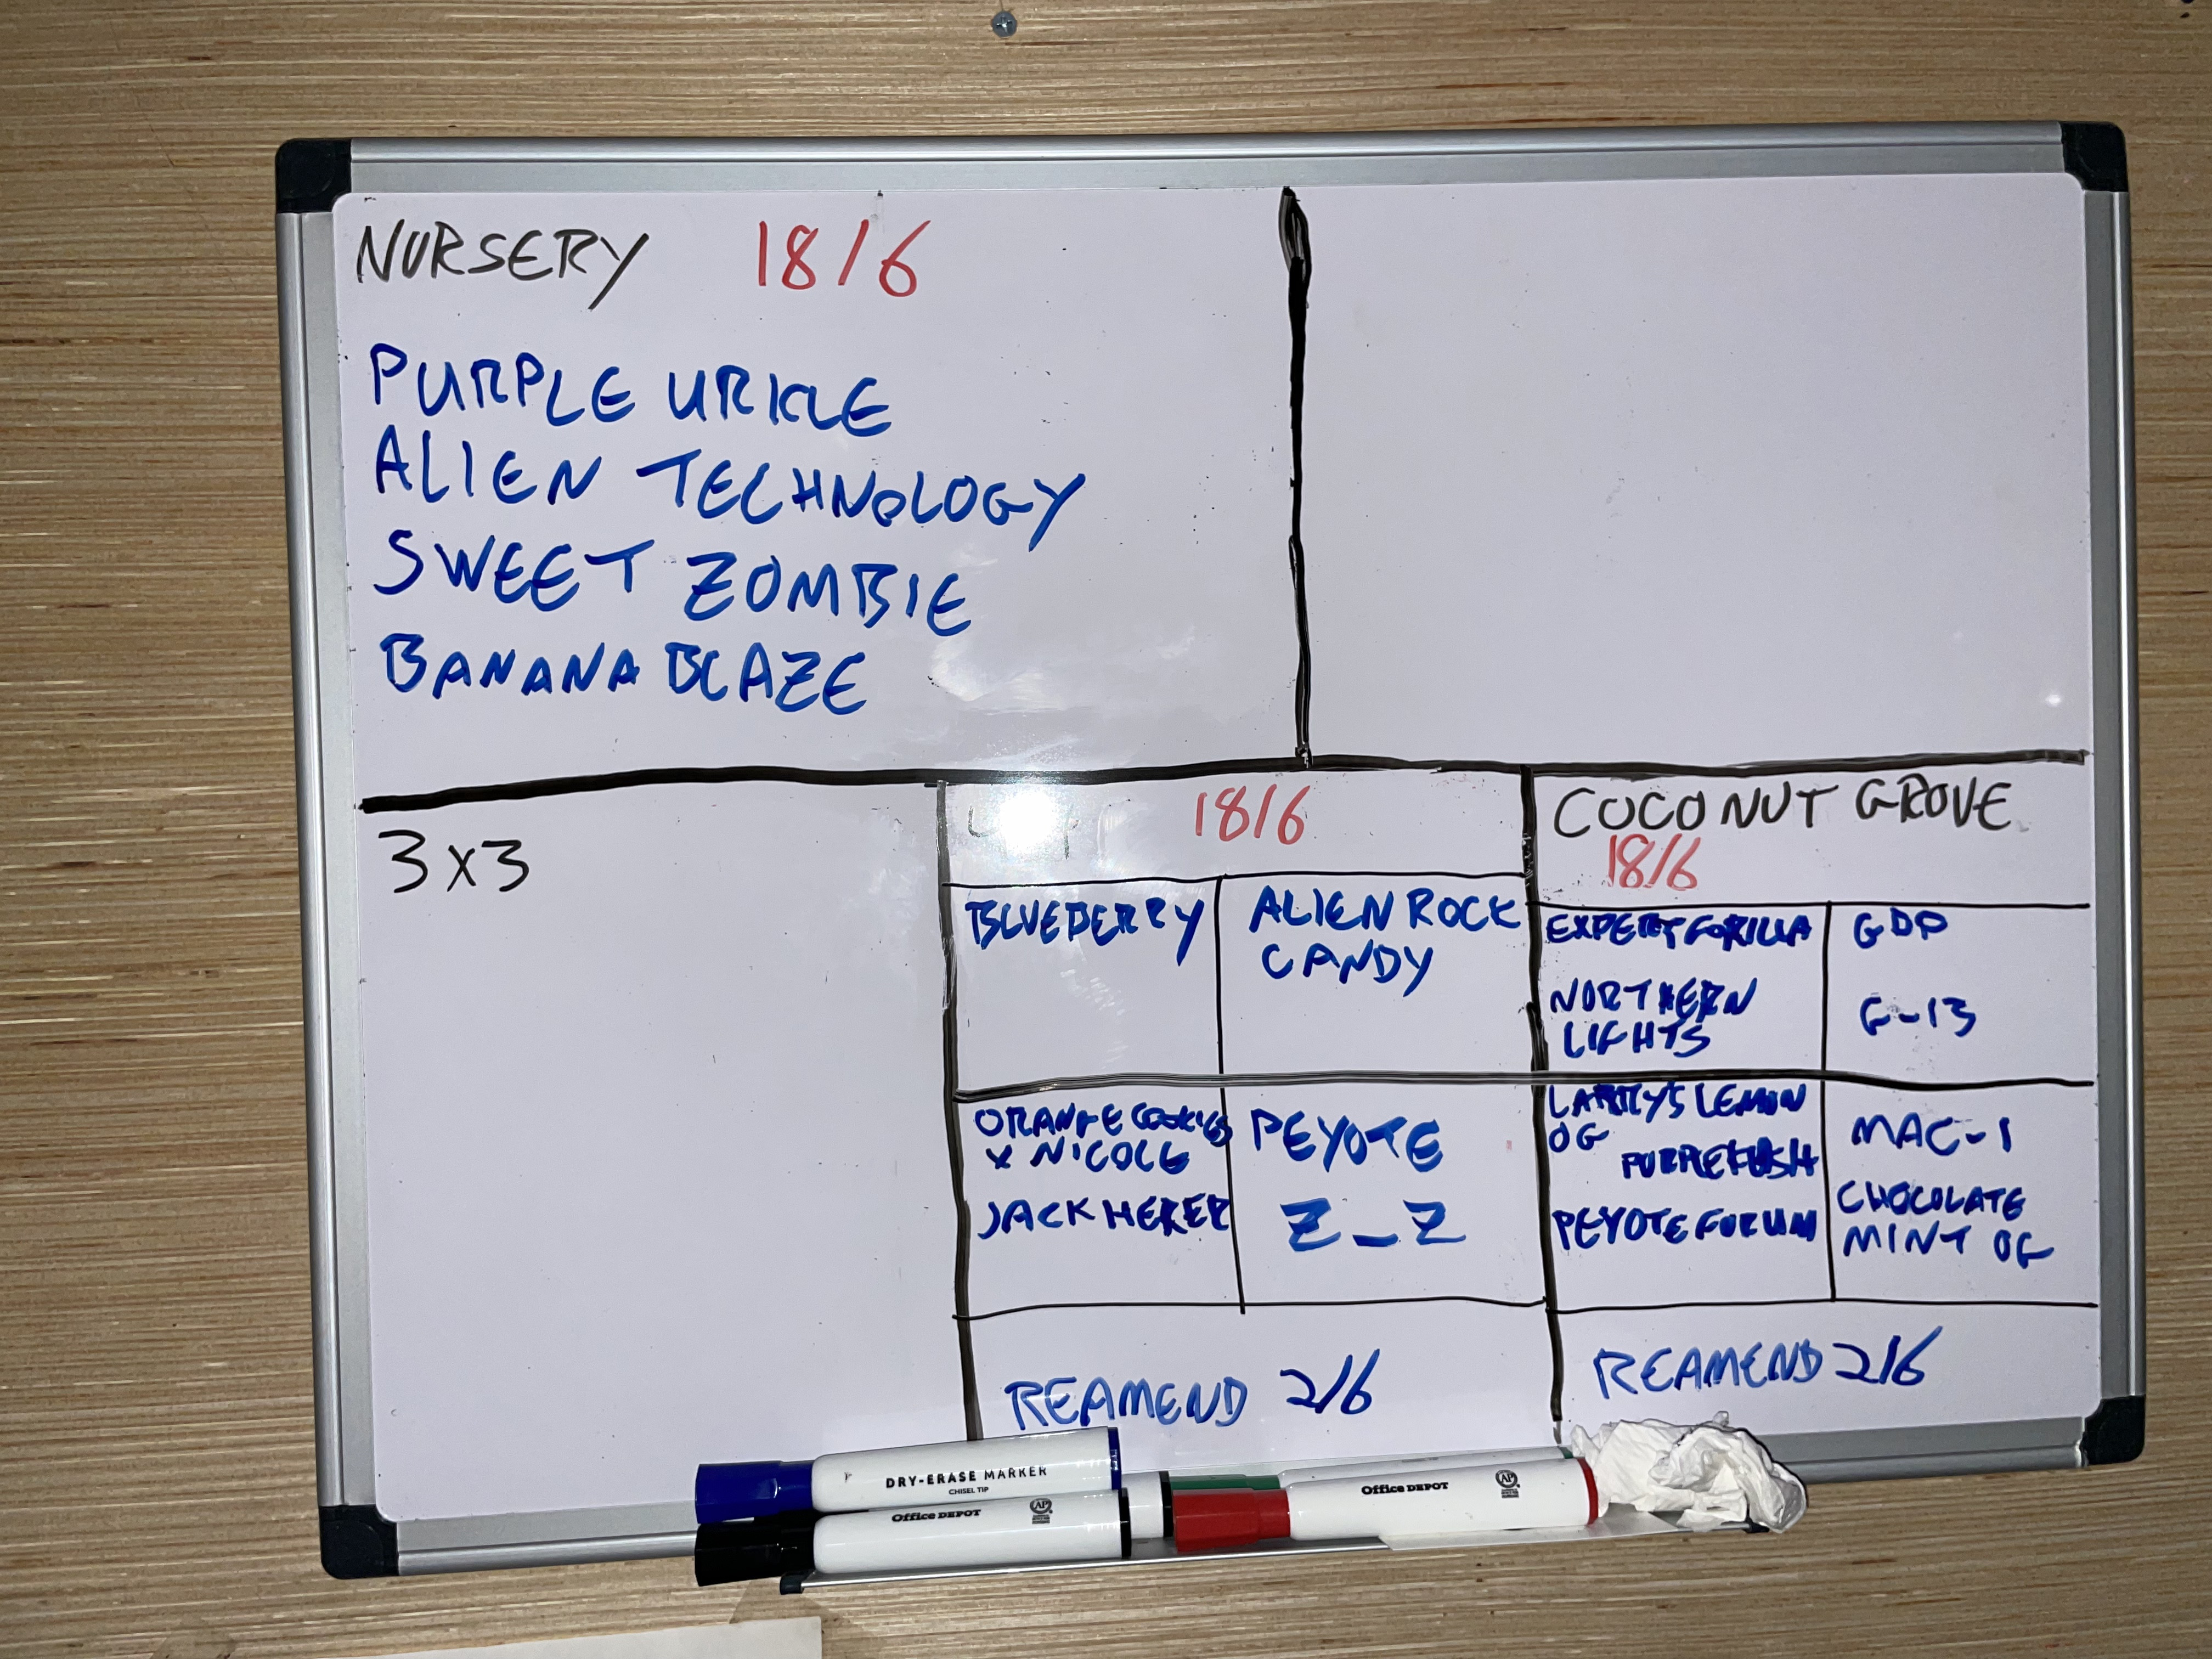 NURSERY 18/6
PURPLE URKLE
ALIEN TECHNOLOGY
SWEET ZOMBIE
BANANA BLAZE
3x3
18/6
BLUEBERRY
ALIEN ROCK
CANDY
ORANGE COOKIES
X NICOLE
JACK HERER
PEYOTE
Z_Z
REAMEND 2/6
COCONUT GROVE
18/6
EXPERT GORILLA
NORTHERN
LIGHTS
GDP
G-13
LARRY'S LEMON
OG
PURPLE KUSH
PEYOTE FORUM
MAC-1
CHOCOLATE
MINT OG
REAMEND 2/6
DRY-ERASE MARKER
CHISEL TIP
Office DEPOT
AP
Office DEPOT
AP